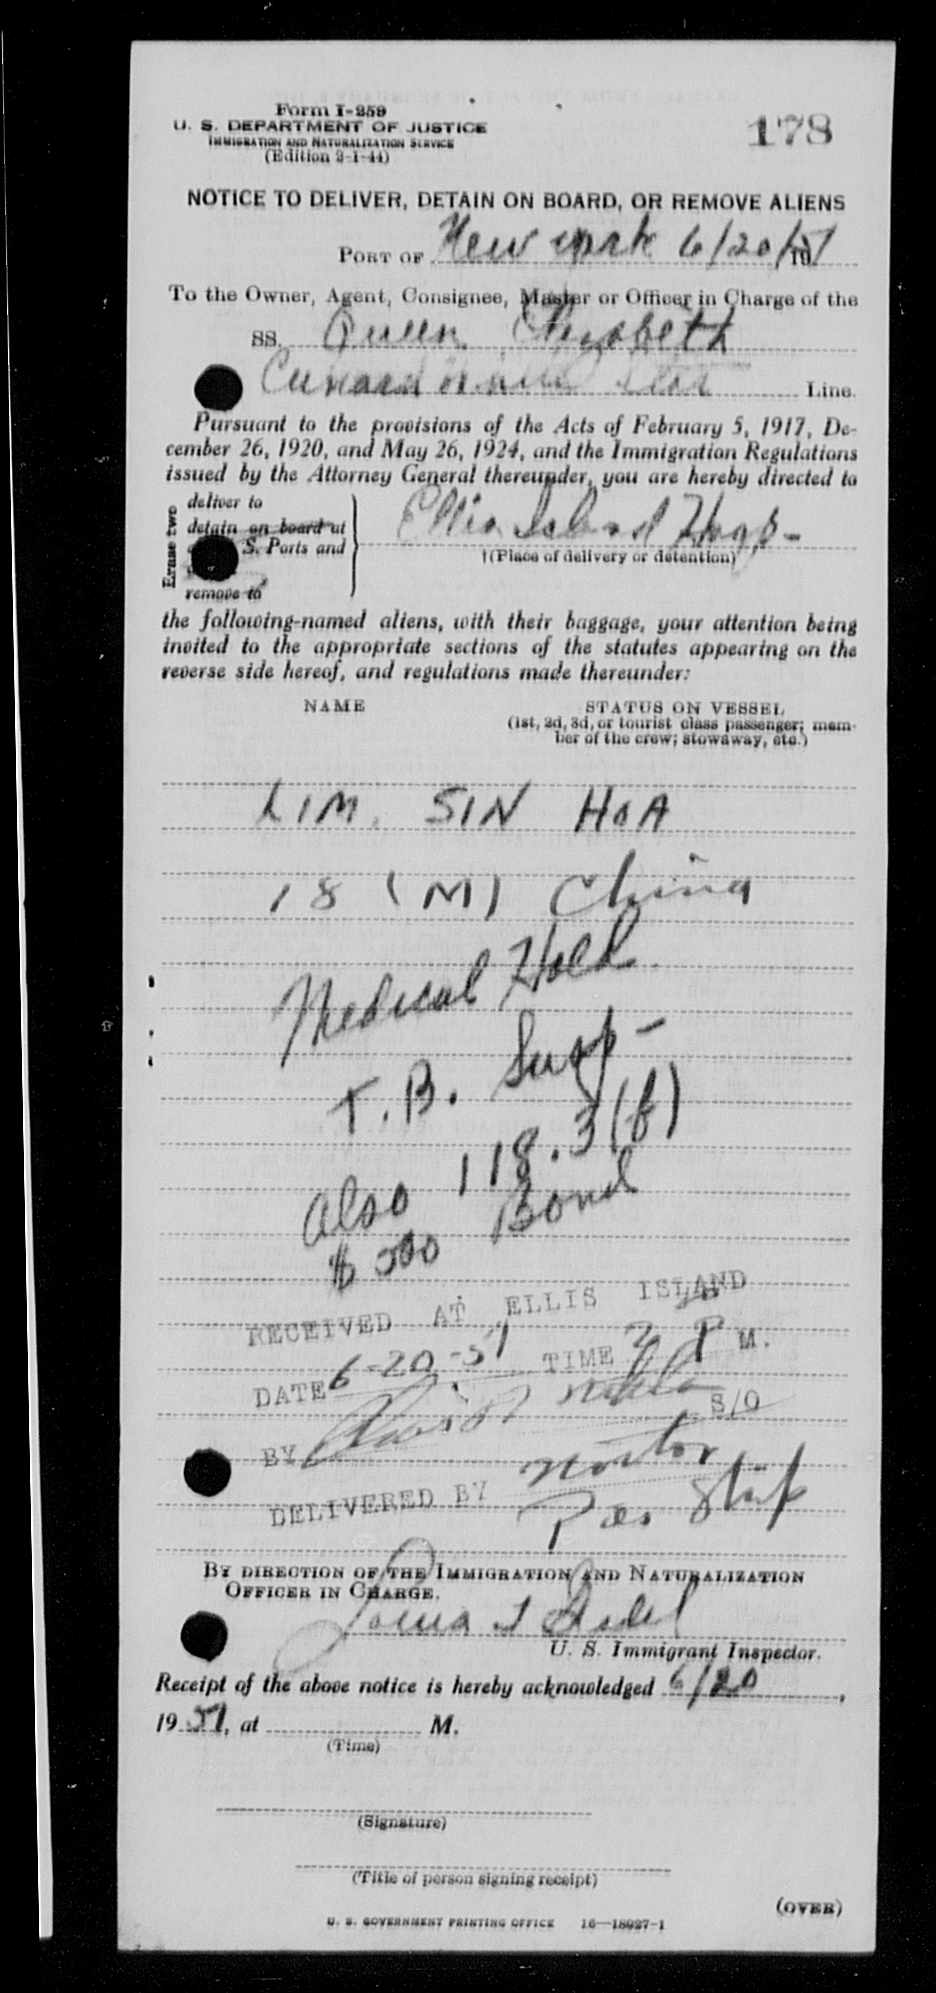 Form I-259
U. S. DEPARTMENT OF JUSTICE
IMMIGRATION AND NATURALIZATION SERVICE
(Edition 2-1-44)
178
NOTICE TO DELIVER, DETAIN ON BOARD, OR REMOVE ALIENS
PORT OF New York 6/20/51
To the Owner, Agent, Consignee, Master or Officer in Charge of the
SS. Queen Elizabeth
Cunard White Star Line.
Pursuant to the provisions of the Acts of February 5, 1917, De-
cember 26, 1920, and May 26, 1924, and the Immigration Regulations
issued by the Attorney General thereunder, you are hereby directed to
Erase two
deliver to
detain on board at
S. Ports and
remove to
Ellis Island Hosp-
†(Place of delivery or detention)
the following-named aliens, with their baggage, your attention being
invited to the appropriate sections of the statutes appearing on the
reverse side hereof, and regulations made thereunder:
NAME
STATUS ON VESSEL
(1st, 2d, 3d, or tourist class passenger; mem-
ber of the crew; stowaway, etc.)
LIM. SIN HOA
18 (M) China
Medical Hold
T.B. Susp-
also 118.3(b)
$500 Bond
RECEIVED AT ELLIS ISLAND
DATE 6-20-51 TIME P M.
BY S/O
DELIVERED BY
BY DIRECTION OF THE IMMIGRATION AND NATURALIZATION
OFFICER IN CHARGE.
U. S. Immigrant Inspector.
Receipt of the above notice is hereby acknowledged 6/20,
1951, at M.
(Time)
(Signature)
(Title of person signing receipt)
(OVER)
U. S. GOVERNMENT PRINTING OFFICE 16—18927-1